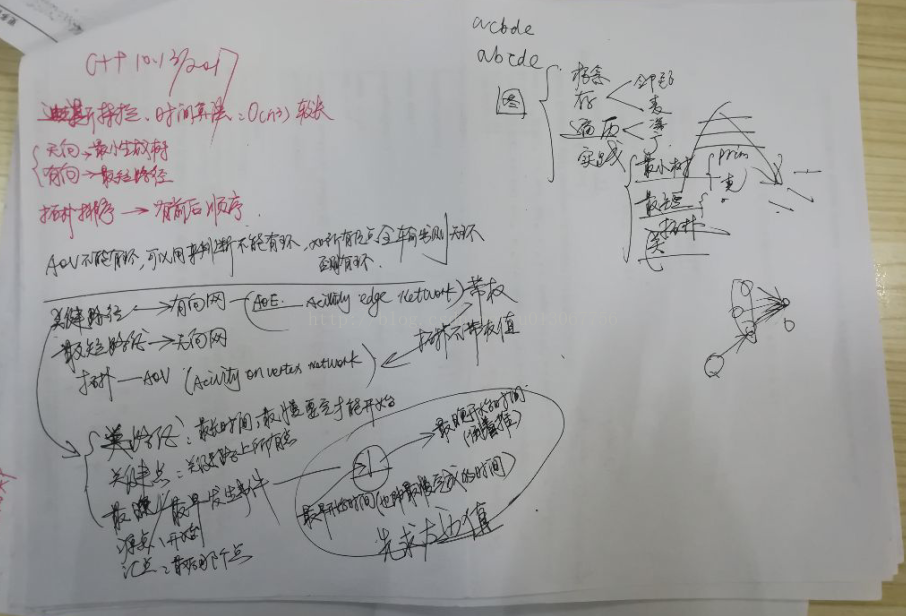 C++ 10.13/2017
时间复杂度:O(n3) 较长
无向→最小生成树
有向→最短路径
拓扑排序→有前后顺序.
AOV不能有环,可以用来判断不能有环,如所有顶点全输出则无环
否则有环.
关键路径→有向网—(AOE Acitivity edge Network)带权
最短路径→无向网
拓扑不带权值
拓扑—AOV (Acivity on vertex network)
关键路径:最长时间,最慢要完才能开始
关键点:关键路径上所有点
最晚/最早发生事件
源点:开始
汇点:最后的那个点
最晚开始时间
(倒着推)
最早开始时间(也即最慢完成的时间)
先求左边值
acbde
abcde
图
概念
存
遍历
实践
最小树
prim
克
最短
拓扑
关